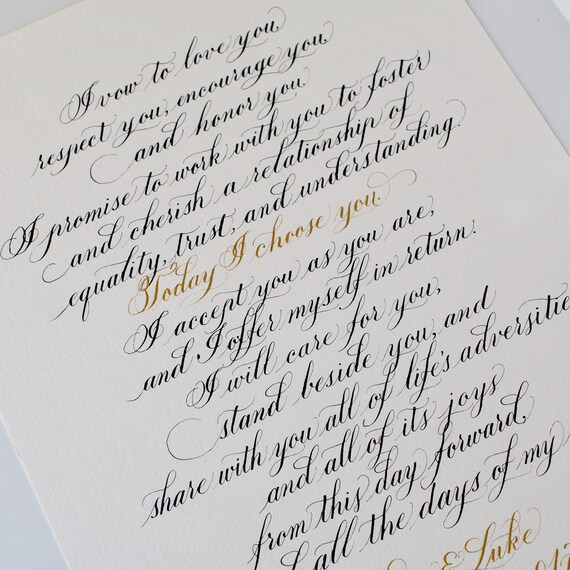 I vow to love you,
respect you, encourage you
and honor you.
I promise to work with you to foster
and cherish a relationship of
equality, trust, and understanding.
Today I choose you.
I accept you as you are,
and I offer myself in return.
I will care for you,
stand beside you, and
share with you all of life's adversitie
and all of its joys
from this day forward,
all the days of my
& Luke